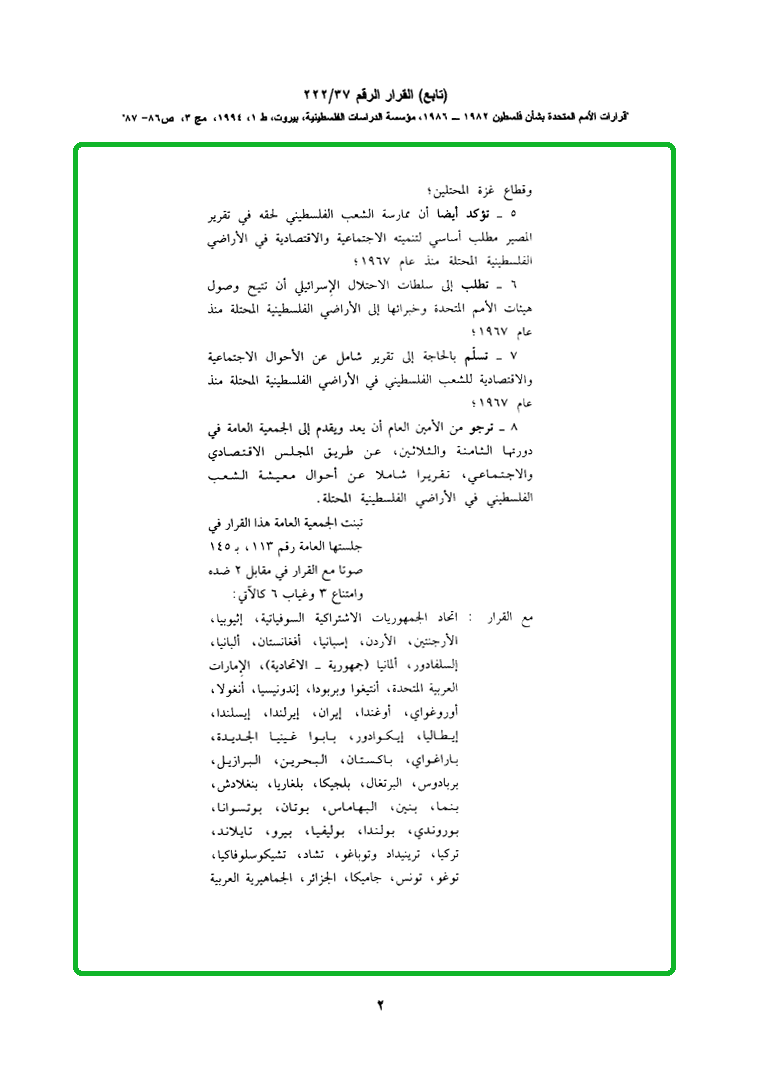 (تابع) القرار الرقم ٢٢٢/٣٧
"قرارات الأمم المتحدة بشأن فلسطين ١٩٨٢ ــ ١٩٨٦، مؤسسة الدراسات الفلسطينية، بيروت، ط ١، ١٩٩٤، مج ٣، ص٨٦- ٨٧"
وقطاع غزة المحتلين؛
٥ ــ تؤكد أيضا أن ممارسة الشعب الفلسطيني لحقه في تقرير
المصير مطلب أساسي لتنميته الاجتماعية والاقتصادية في الأراضي
الفلسطينية المحتلة منذ عام ١٩٦٧؛
٦ ــ تطلب إلى سلطات الاحتلال الإسرائيلي أن تتيح وصول
هيئات الأمم المتحدة وخبرائها إلى الأراضي الفلسطينية المحتلة منذ
عام ١٩٦٧؛
٧ ــ تسلّم بالحاجة إلى تقرير شامل عن الأحوال الاجتماعية
والاقتصادية للشعب الفلسطيني في الأراضي الفلسطينية المحتلة منذ
عام ١٩٦٧؛
٨ ــ ترجو من الأمين العام أن يعد ويقدم إلى الجمعية العامة في
دورتها الثامنة والثلاثين، عن طريق المجلس الاقتصادي
والاجتماعي، تقريرا شاملا عن أحوال معيشة الشعب
الفلسطيني في الأراضي الفلسطينية المحتلة.
تبنت الجمعية العامة هذا القرار في
جلستها العامة رقم ١١٣، بـ ١٤٥
صوتا مع القرار في مقابل ٢ ضده
وامتناع ٣ وغياب ٦ كالآتي:
مع القرار : اتحاد الجمهوريات الاشتراكية السوفياتية، إثيوبيا،
الأرجنتين، الأردن، إسبانيا، أفغانستان، ألبانيا،
إلسلفادور، ألمانيا (جمهورية ــ الاتحادية)، الإمارات
العربية المتحدة، أنتيغوا وبربودا، إندونيسيا، أنغولا،
أوروغواي، أوغندا، إيران، إيرلندا، إيسلندا،
إيطاليا، إيكوادور، بابوا غينيا الجديدة،
باراغواي، باكستان، البحرين، البرازيل،
بربادوس، البرتغال، بلجيكا، بلغاريا، بنغلادش،
بنما، بنين، البهاماس، بوتان، بوتسوانا،
بوروندي، بولندا، بوليفيا، بيرو، تايلاند،
تركيا، ترينيداد وتوباغو، تشاد، تشيكوسلوفاكيا،
توغو، تونس، جاميكا، الجزائر، الجماهيرية العربية
٢